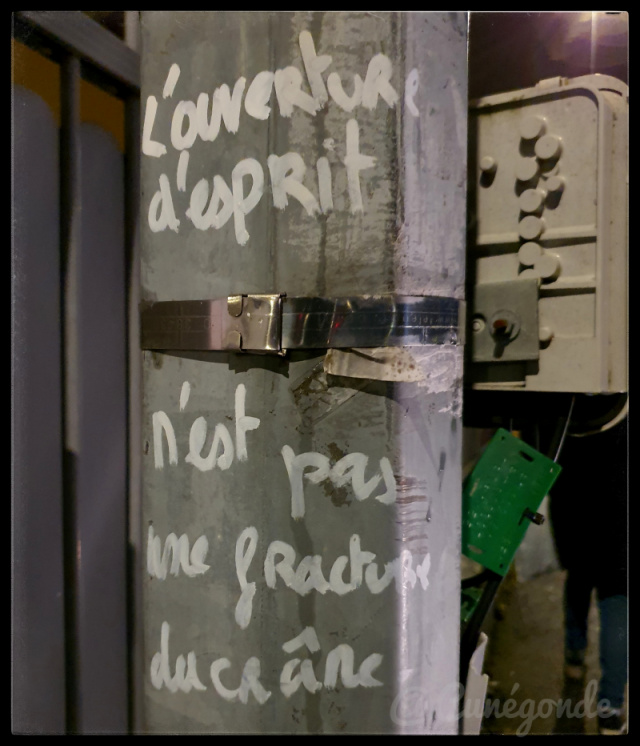 L'ouverture
d'esprit
n'est pas
une fracture
du crâne
@Cunégonde